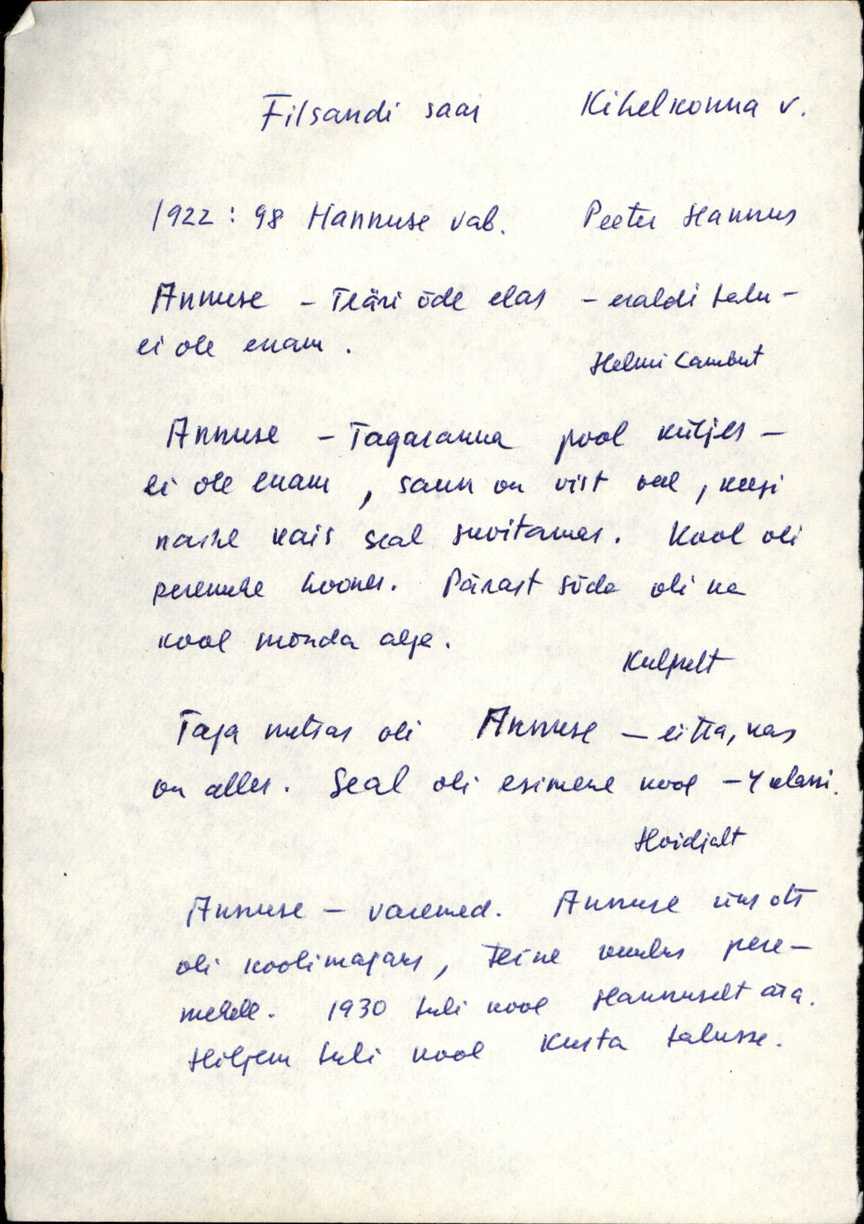 Filsandi saar Kihelkonna v.
1922: 98 Hannuse vab. Peeter Hannus
Annuse - Teäri õde elas - eraldi talu -
ei ole enam.
Helmi Lambut
Annuse - Tagaranna pool küljes -
ei ole enam, saun on vist veel, keegi
naine käis seal suvitamas. Kool oli
peremehe hoones. Pärast sõda oli ka
kool mõnda aega.
Kulpult
Taga metsas oli Annuse - ei tea, kas
on alles. Seal oli esimene kool - 4 klassi.
Hoidjalt
Annuse - varemed. Annuse üks ots
oli koolimajaks, teine kuulus pere-
mehele. 1930 tuli kool Hannuselt ära.
Hiljem tuli kool Kusta talusse.